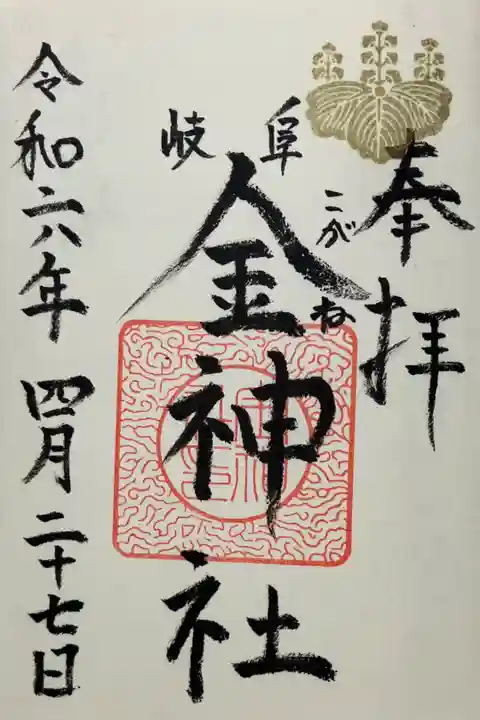 奉拝
岐阜
こがね
金神社
令和六年 四月二十七日